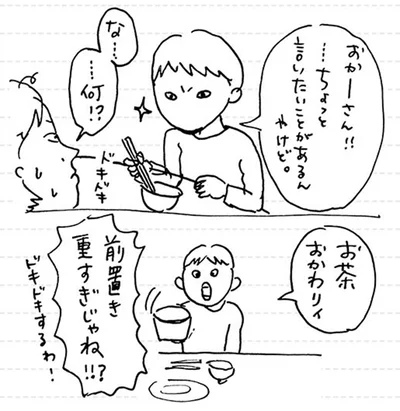 おかーさん!!
…ちょっと
言いたいことがあるん
やけど。
な…
…何!?
ドキドキ
お茶
おかわりィ
前置き
重すぎじゃね!!?
ドキドキするわ!